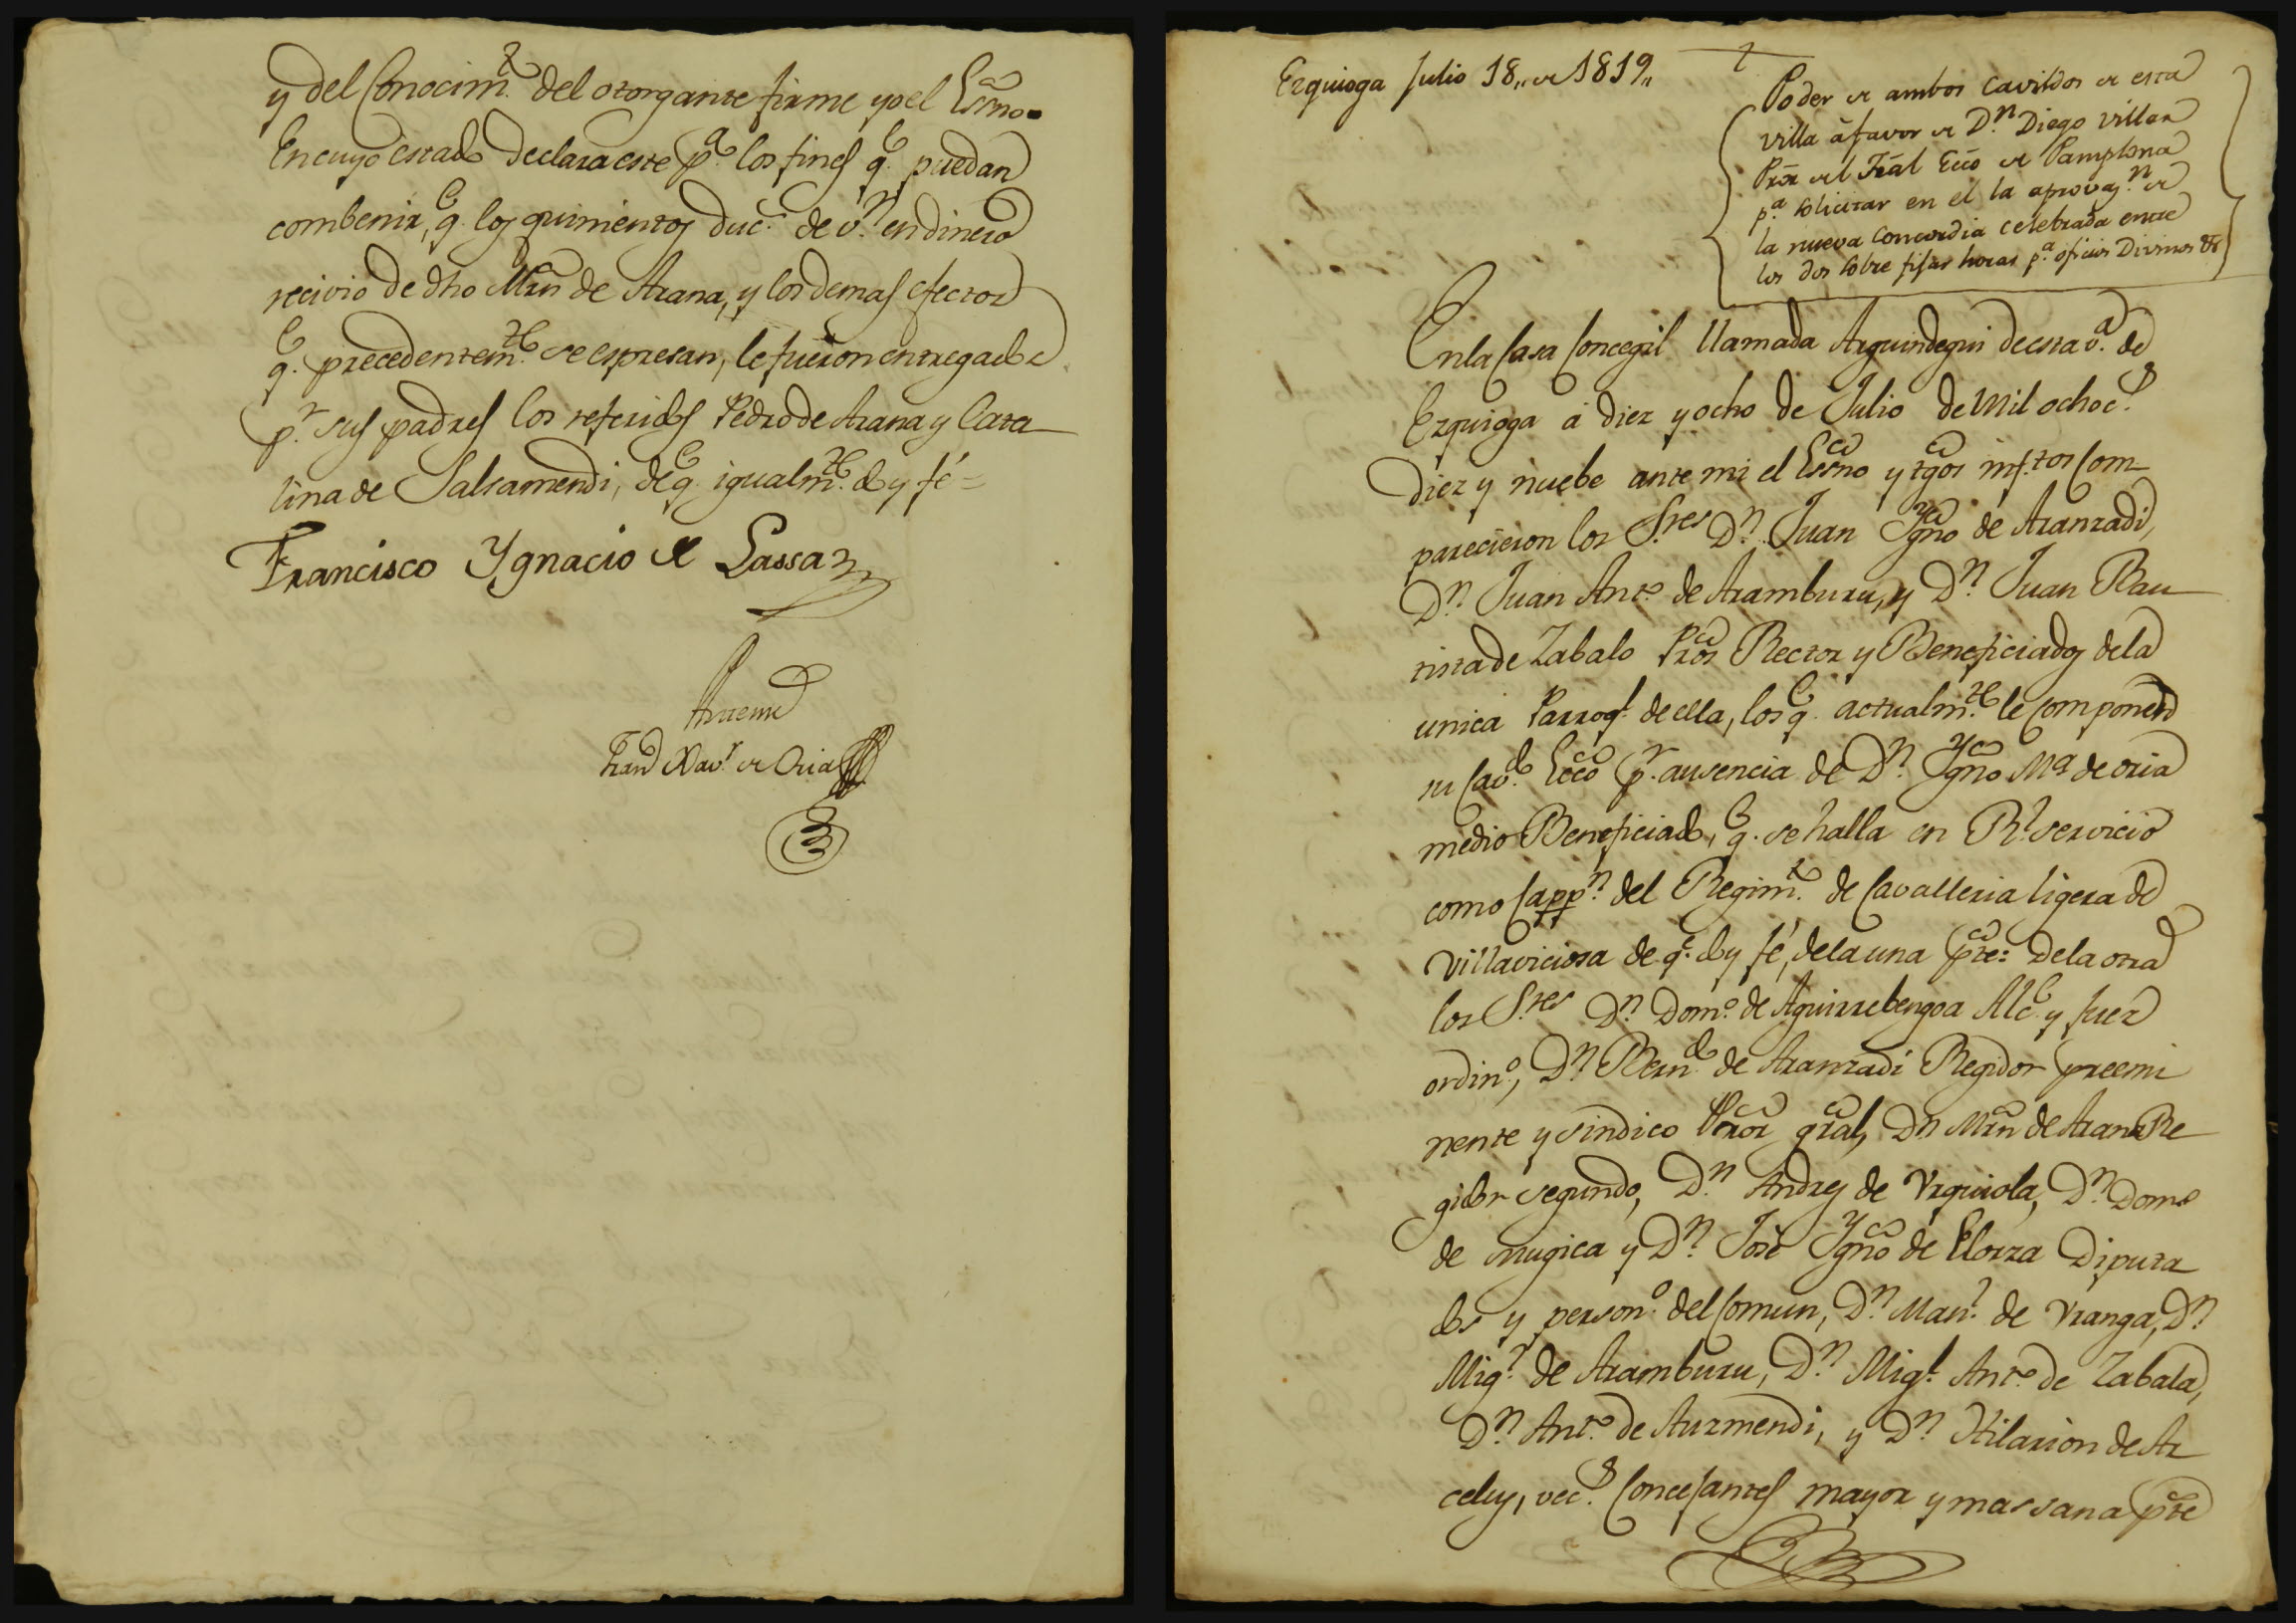 y del Conocim.to del otorgante firme yo el Es.no
En cuyo estado declara este p.a los fines q.e puedan
combenir, q.e los quinientos duc.s de v.n en dinero
recivio de dho Mrn de Arana, y los demas efectos
q.e precedentem.te se espresan, le fueron entregados
p.r sus padres los referidos Pedro de Arana y Cata
lina de Salsamendi, de q.e igualm.te doy fé=
Francisco Ygnacio de Lassa
Antemi
Fran.co Xav.r de Oria
Ezquioga Julio 18,, de 1819,,
Poder de ambos Cavildos de esta
villa á favor de D.n Diego Villar
Pror del Tral Ecco de Pamplona
p.a solicitar en el la aprovaz.n de
la nueva concordia celebrada entre
los dos sobre fijar horas p.a oficios Divinos &c
En la Casa Concegil llamada Arguindegui de esta v.a de
Ezquioga á diez y ocho de Julio de Mil ochoc.s
diez y nuebe ante mi el Esno y tgos inf.tos Com
parecieron los S.res D.n Juan Ygno de Aranzadi,
D.n Juan Ant.o de Aramburu, y D.n Juan Bau
tista de Zabalo Pros Rector y Beneficiados de la
unica Parroq.l de ella, los q.e actualm.te le componen
su Cav.do Ecco p.r ausencia de D.n Ygno M.a de oria
medio Beneficiado, q.e se halla en R.l servicio
como Capp.n del Regim.to de Cavalleria ligera de
Villaviciosa de q.e doy fé, de la una pte: De la otra
los S.res D.n Dom.o de Aguirrebengoa Alc.e y Juez
ordin.o, D.n Bern.do de Aranzadi Regidor preemi
nente y sindico Pror gral, Dn Mrn de Arana Re
gidor segundo, D.n Andres de Urquiola, D.n Dom.o
de mugica y D.n José Ygno de Elorza Diputa
dos y person.o del Comun, D.n Man.l de Uranga, D.n
Mig.l de Aramburu, D.n Mig.l Ant.o de Zabala,
D.n Ant.o de Aurmendi, y D.n Hilarion de Ar
celuy, vec.s Concejantes mayor y mas sana pte